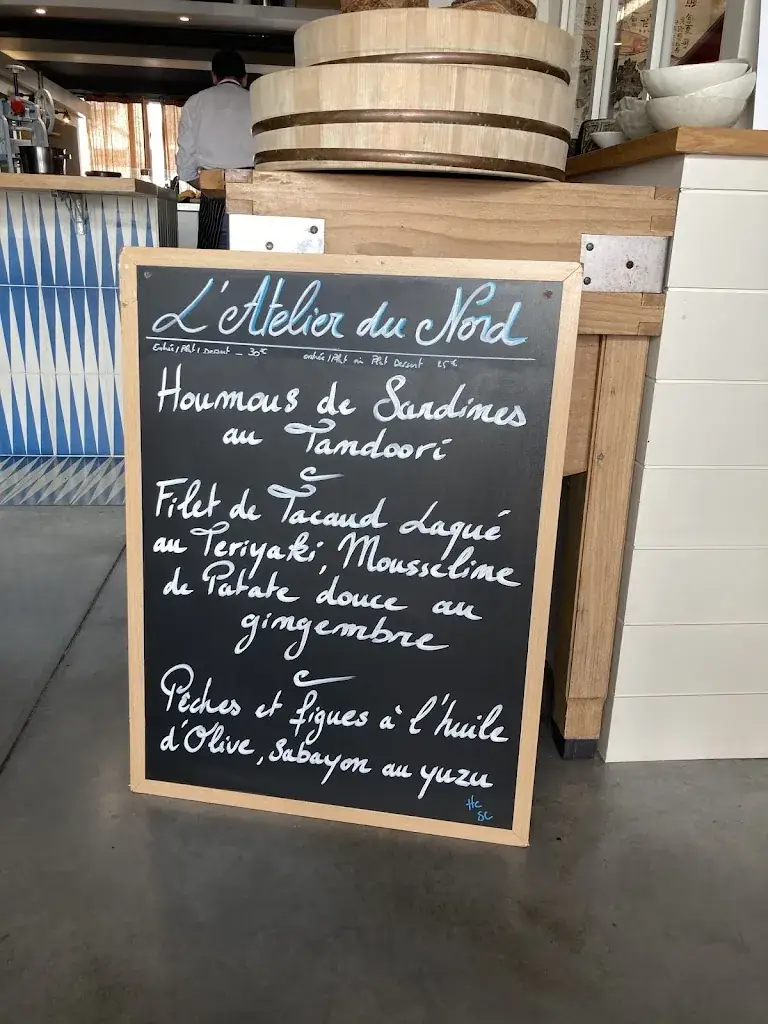 L'Atelier du Nord
Entrée / Plat / Dessert _ 30€ entrée / Plat ou Plat Dessert 25€
Houmous de Sardines
au Tandoori
Filet de Tacaud Laqué
au Teriyaki, Mousseline
de Patate douce au
gingembre
Pêches et figues à l'huile
d'Olive, Sabayon au yuzu
Hc
SC